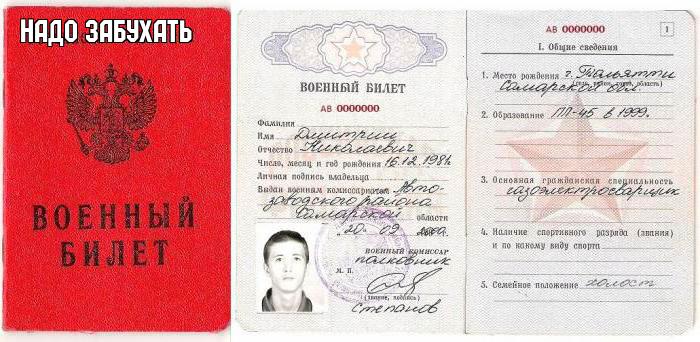 НАДО ЗАБУХАТЬ
ВОЕННЫЙ
БИЛЕТ
ВОЕННЫЙ БИЛЕТ
АВ 0000000
Фамилия
Имя Дмитрий
Отчество Николаевич
Число, месяц и год рождения 16.12.1981г
Личная подпись владельца
Выдан военным комиссариатом Авто-
заводского района
Самарской области
"20" 09 2000 г.
ВОЕННЫЙ КОМИССАР
полковник
М. П.
(звание, подпись)
Степанов
АВ 0000000
1
I. Общие сведения
1. Место рождения г. Тольятти
Самарской обл.
2. Образование ПЛ-45 в 1999г.
3. Основная гражданская специальность
газоэлектросварщик
4. Наличие спортивного разряда (звания)
и по какому виду спорта
5. Семейное положение холост